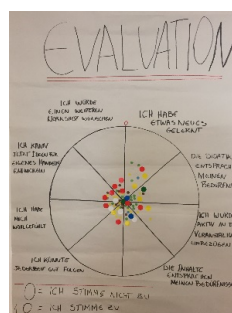 EVALUATION
ICH WÜRDE
EINEN WEITEREN
WORKSHOP WÜNSCHEN
ICH HABE
ETWAS NEUES
GELERNT
ICH KANN
JETZT
EIGENES
DIE DIDAKTIK
ENTSPRACH
MEINEN
BEDÜRFN
ICH HABE
MICH
WOHLGEFÜHLT
ICH WURDE
AKTIV IN D
VERANSTALTU
EINBEZOGEN
ICH KONNTE
GUT FOLGEN
DIE INHALTE
ENTSPRACHEN
MEINEN BEDÜRFNISSE
0 = ICH STIMME NICHT ZU
10 = ICH STIMME ZU